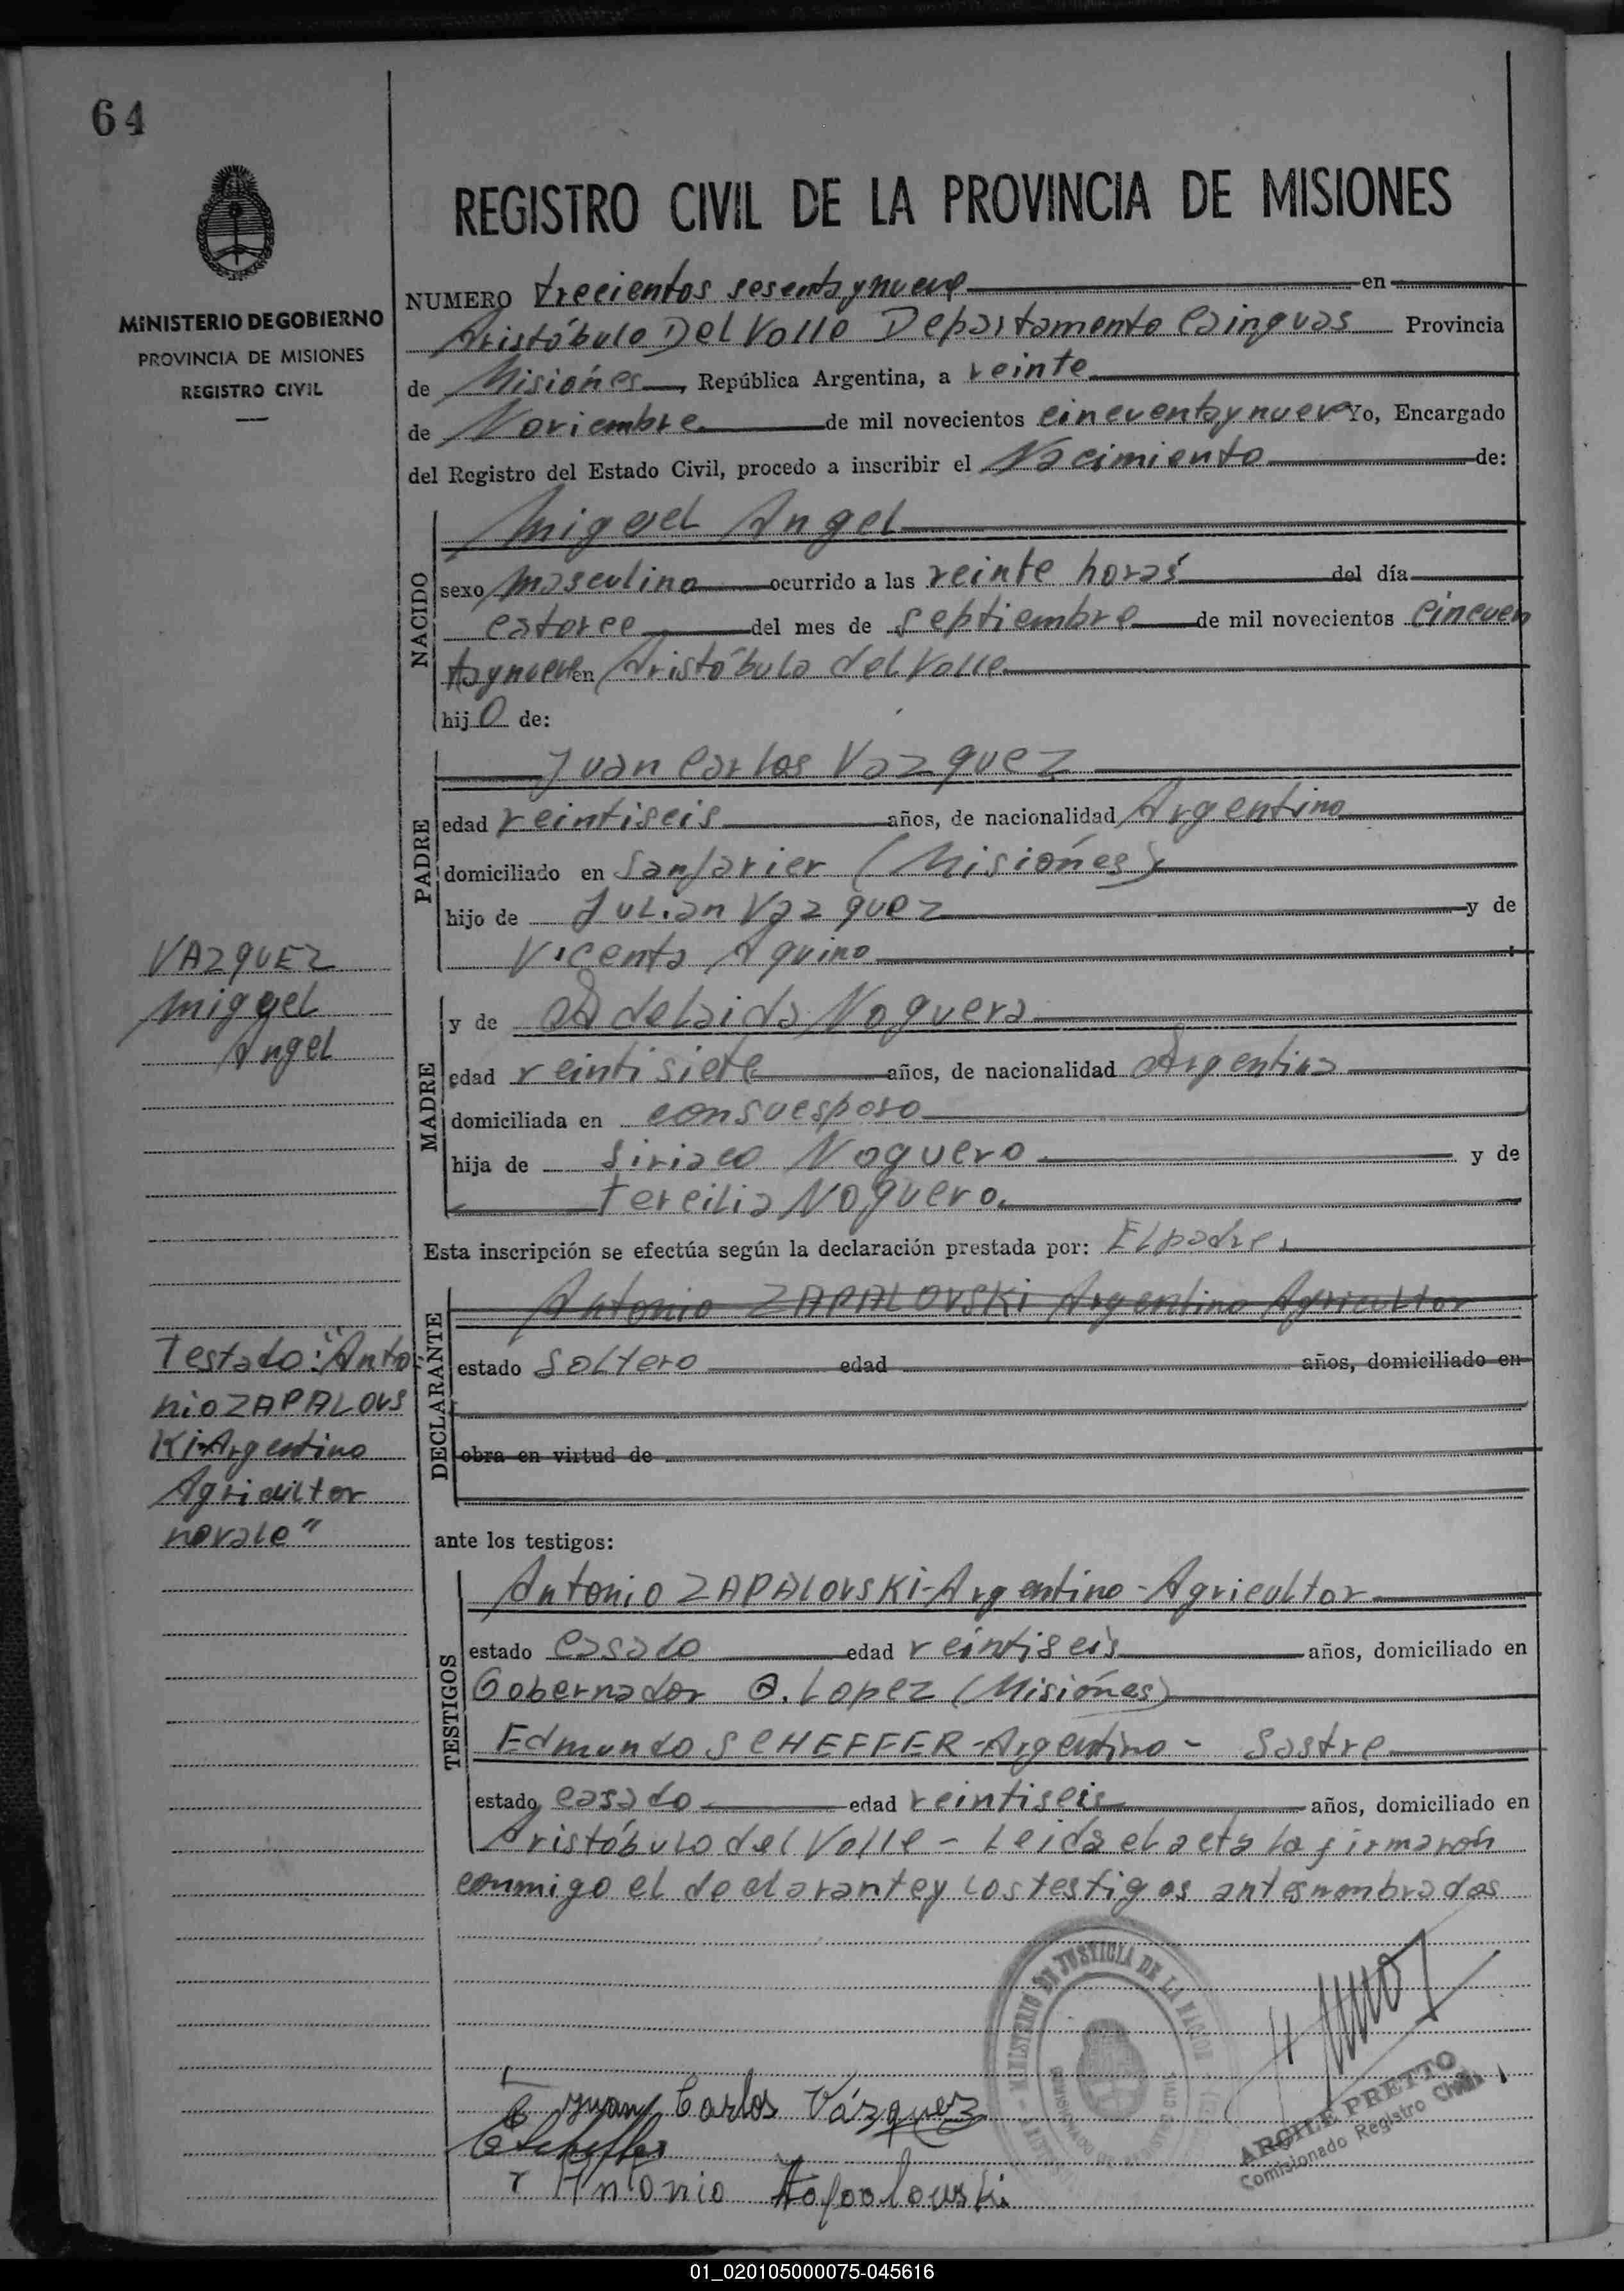 64
MINISTERIO DE GOBIERNO
PROVINCIA DE MISIONES
REGISTRO CIVIL
REGISTRO CIVIL DE LA PROVINCIA DE MISIONES
NUMERO trecientos sesentaynueve en
Aristóbulo Del Valle Departamento Cainguas Provincia
de Misiónes, República Argentina, a veinte
de Noviembre de mil novecientos cincuentaynueve Yo, Encargado
del Registro del Estado Civil, procedo a inscribir el Nacimiento de:
NACIDO
Miguel Angel
sexo masculino ocurrido a las veinte horas del día
catorce del mes de septiembre de mil novecientos cincuen
taynueve en Aristóbulo del Valle
hijo de:
PADRE
Juan Carlos Vazquez
edad veintiseis años, de nacionalidad Argentino
domiciliado en San Javier (Misiónes)
hijo de Julian Vazquez y de
Vicenta Aquino
MADRE
y de Adelaida Noguera
edad veintisiete años, de nacionalidad Argentina
domiciliada en consuesposo
hija de Siriaco Noguero y de
Tercilia Noguero.
Esta inscripción se efectúa según la declaración prestada por: El padre.
DECLARANTE
Antonio ZAPALOVSKI Argentino Agricultor
estado Soltero edad años, domiciliado en
obra en virtud de
ante los testigos:
TESTIGOS
Antonio ZAPALOVSKI-Argentino-Agricultor
estado casado edad veintiseis años, domiciliado en
Gobernador J. Lopez (Misiónes)
Edmundo SCHEFFER-Argentino- Sastre
estado casado edad veintiseis años, domiciliado en
Aristóbulo del Valle - Leida el acta la firmarón
conmigo el declarante y los testigos antesnombrados
VAZQUEZ
Miguel
Angel
Testado: "Anto
nio ZAPALOVS
KI-Argentino
Agricultor
novale"
MINISTERIO DE JUSTICIA DE LA NACION
Juan Carlos Vázquez
Antonio
ARGILE PRETTO
Comisionado Registro Civil
01_020105000075-045616